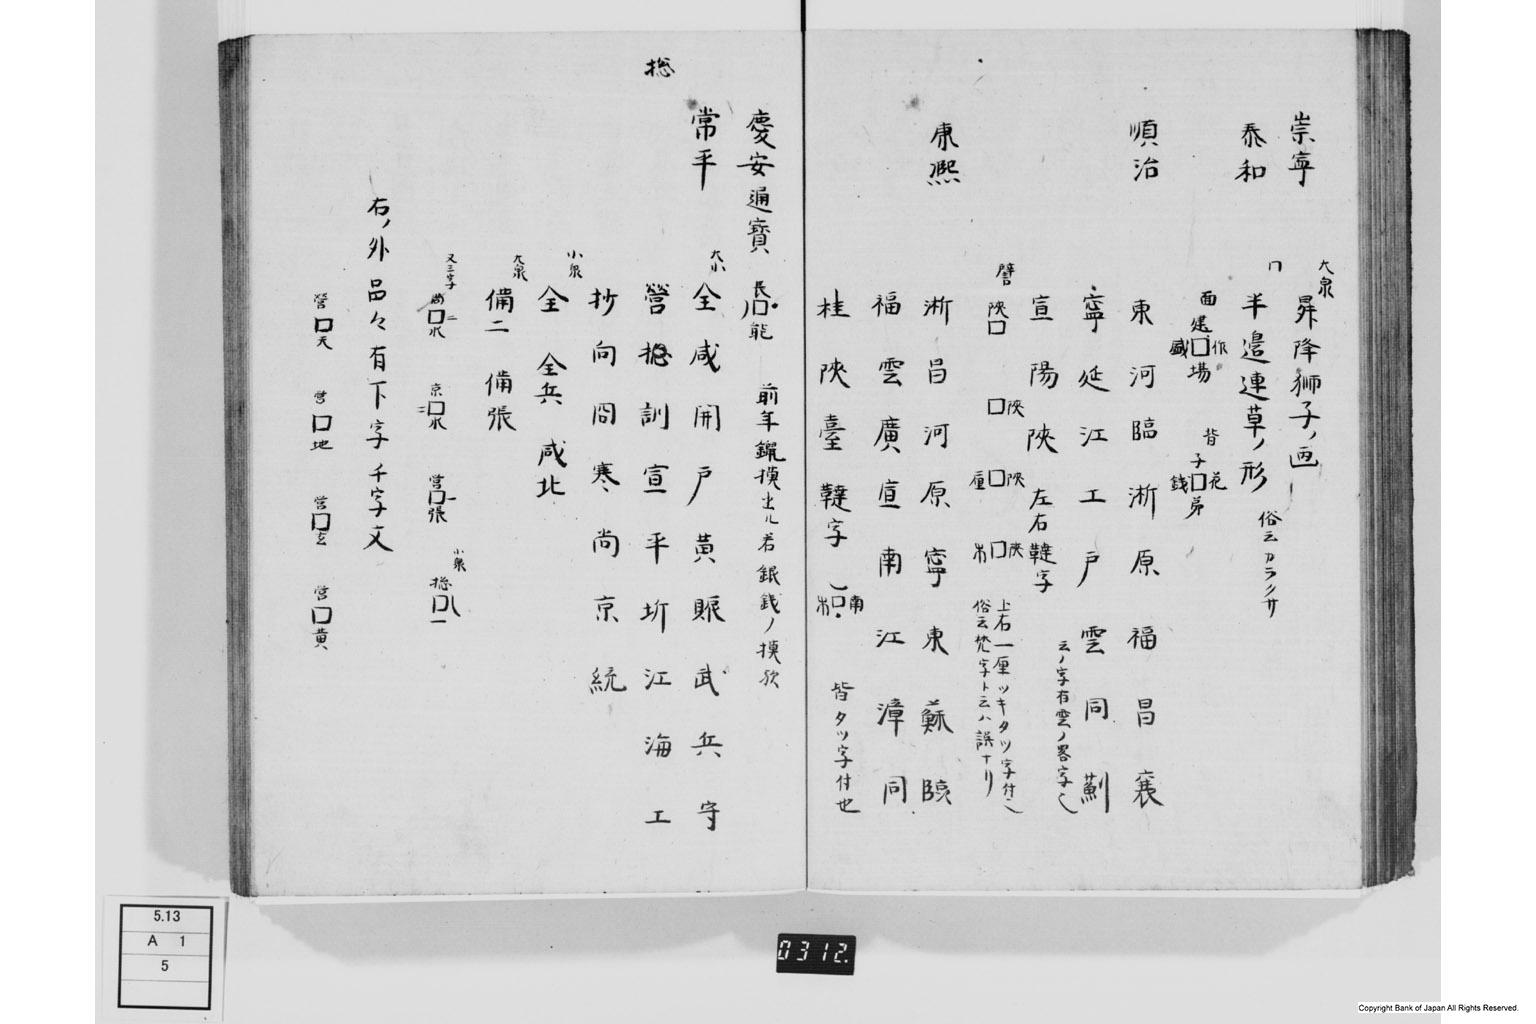 崇寧 大泉 昇降獅子ノ画
泰和 冂 半邉連草ノ形 俗云カラクサ
面 建 作 盛 場 背 子 花 錢 弟
順治 東河臨淅原福昌襄
寧延江工戸雲同薊 云ノ字有雲ノ畧字也
宣陽陝 左右韃字
譬 陝口 口陝 口陝厘 口陝
上右一厘ツキタツ字付也
俗云梵字ト云ハ誤ナリ
康熈 淅昌河原寧東蘇臨
福雲廣宣南江漳同
桂陝臺韃字 南 皆タツ字付也
慶安通寳 長口能 前年鑞摸出ル若銀銭ノ摸欤
常平 大小 全咸開戸黄賑武兵守
捴
營捴訓宣平圻江海工
抄向問寒尚京統
小泉 全 全兵 咸北
大泉 備二 備張
又三字 尚口水二 京口水二 營口一張 小泉 捴口一
右ノ外品々有下字千字文
營口天 営口地 営口玄 営口黄
5.13
A 1
5
0312.
Copyright Bank of Japan All Rights Reserved.